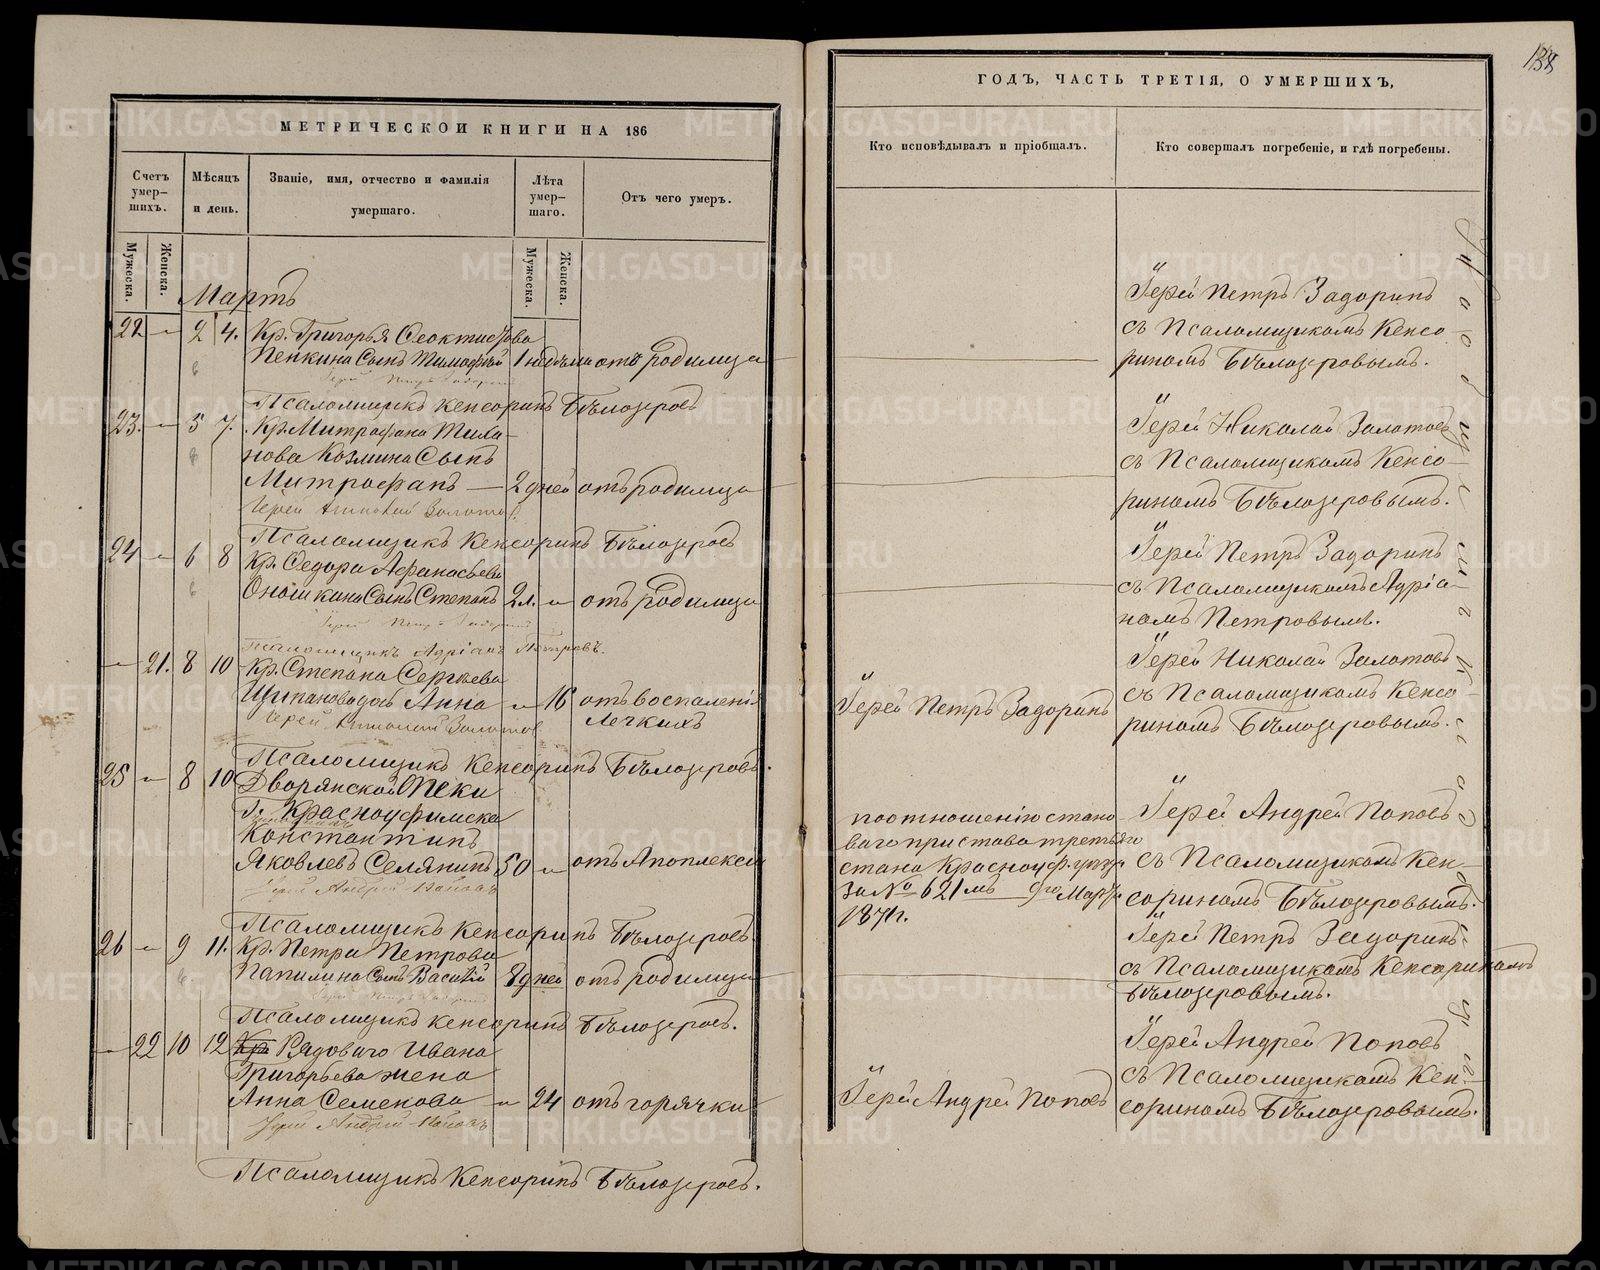 МЕТРИЧЕСКОИ КНИГИ НА 186
Счетъ умер-шихъ.
Мужеска.
Женска.
Мѣсяцъ и день.
Званіе, имя, отчество и фамилія умершаго.
Лѣта умер-шаго.
Мужеска.
Женска.
Отъ чего умеръ.
Мартъ
22 — 2 4. Кр. Григорья Феоктистова
Пенкина Сынъ Тимофей 1 недѣли отъ родимца
Псаломщикъ Кенсоринъ Бѣлозеровъ
23. — 5 7. Кр. Митрофана Тиха-
нова Козмина Сынъ
Митрофанъ — 2 дней отъ родимца
Іерей Николай Золотовъ
Псаломщикъ Кенсоринъ Бѣлозеровъ
24 — 6 8 Кр. Федора Афанасьева
Сынъ Степанъ 2 л. — отъ родимца
Іерей Петръ Задоринъ
Псаломщикъ Адріанъ Петровъ.
— 21. 8 10 Кр. Степана Сергѣева
Щипанова дочь Анна — 16 отъ воспаленія
Іерей Николай Золотовъ лечкихъ
Псаломщикъ Кенсоринъ Бѣлозеровъ.
25 — 8 10 Дворянской Опеки
Г. Красноуфимска
Константинъ
Яковлевъ Селянинъ 50 — отъ Апоплексіи
Іерей Андрей Поповъ
Псаломщикъ Кенсоринъ Бѣлозеровъ.
26 — 9 11. Кр. Петра Петрова
Папилина Сынъ Василій 8 дней отъ родимца
Псаломщикъ Кенсоринъ Бѣлозеровъ.
— 22 10 12 Кр. Рядоваго Ивана
Григорьева жена
Анна Семенова — 24 отъ горячки
Іерей Андрей Поповъ
Псаломщикъ Кенсоринъ Бѣлозеровъ.
138
ГОДЪ, ЧАСТЬ ТРЕТІЯ, О УМЕРШИХЪ,
Кто исповѣдывалъ и пріобщалъ.
Кто совершалъ погребеніе, и гдѣ погребены.
Іерей Петръ Задоринъ
съ Псаломщикомъ Кенсо-
риномъ Бѣлозеровымъ.
Іерей Николай Золотовъ
съ Псаломщикомъ Кенсо-
риномъ Бѣлозеровымъ.
Іерей Петръ Задоринъ
съ Псаломщикомъ Адріа-
номъ Петровымъ.
Іерей Петръ Задоринъ
Іерей Николай Золотовъ
съ Псаломщикомъ Кенсо-
риномъ Бѣлозеровымъ.
по отношенію стано-
ваго пристава третьяго
стана Красноуф. уѣзд.
за № 621мъ 9го Марта
1871 г.
Іерей Андрей Поповъ
съ Псаломщикомъ Кен-
сориномъ Бѣлозеровымъ.
Іерей Петръ Задоринъ
съ Псаломщикомъ Кенсориномъ
Бѣлозеровымъ.
Іерей Андрей Поповъ
Іерей Андрей Поповъ
съ Псаломщикомъ Кен-
сориномъ Бѣлозеровымъ.
METRIKI.GASO-URAL.RU